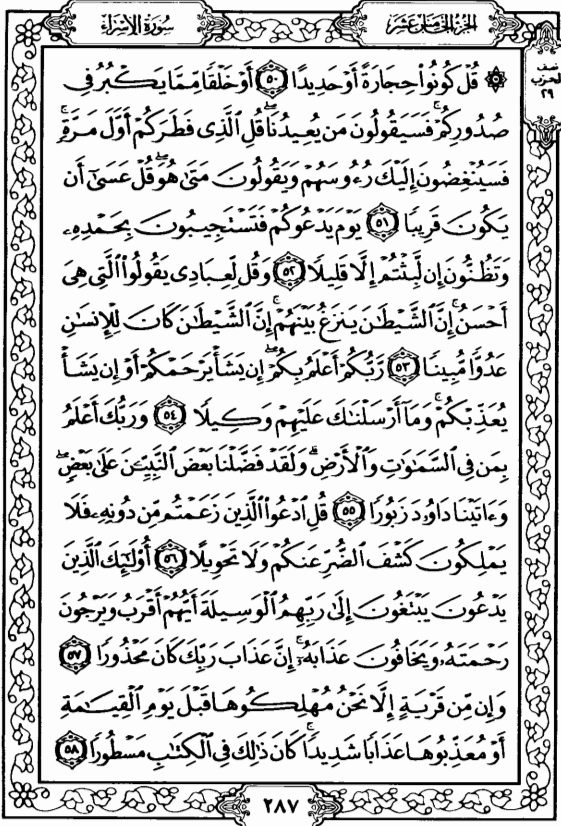 سورة الإسراء
الجزء الخامس عشر
نصف
الحزب
٢٩
۞ قُلْ كُونُوا۟ حِجَارَةً أَوْ حَدِيدًا ۝٥٠ أَوْ خَلْقًا مِّمَّا يَكْبُرُ فِى
صُدُورِكُمْ ۚ فَسَيَقُولُونَ مَن يُعِيدُنَا ۖ قُلِ ٱلَّذِى فَطَرَكُمْ أَوَّلَ مَرَّةٍ ۚ
فَسَيُنْغِضُونَ إِلَيْكَ رُءُوسَهُمْ وَيَقُولُونَ مَتَىٰ هُوَ ۖ قُلْ عَسَىٰٓ أَن
يَكُونَ قَرِيبًا ۝٥١ يَوْمَ يَدْعُوكُمْ فَتَسْتَجِيبُونَ بِحَمْدِهِۦ
وَتَظُنُّونَ إِن لَّبِثْتُمْ إِلَّا قَلِيلًا ۝٥٢ وَقُل لِّعِبَادِى يَقُولُوا۟ ٱلَّتِى هِىَ
أَحْسَنُ ۚ إِنَّ ٱلشَّيْطَٰنَ يَنزَغُ بَيْنَهُمْ ۚ إِنَّ ٱلشَّيْطَٰنَ كَانَ لِلْإِنسَٰنِ
عَدُوًّا مُّبِينًا ۝٥٣ رَّبُّكُمْ أَعْلَمُ بِكُمْ ۖ إِن يَشَأْ يَرْحَمْكُمْ أَوْ إِن يَشَأْ
يُعَذِّبْكُمْ ۚ وَمَآ أَرْسَلْنَٰكَ عَلَيْهِمْ وَكِيلًا ۝٥٤ وَرَبُّكَ أَعْلَمُ
بِمَن فِى ٱلسَّمَٰوَٰتِ وَٱلْأَرْضِ ۗ وَلَقَدْ فَضَّلْنَا بَعْضَ ٱلنَّبِيِّۦنَ عَلَىٰ بَعْضٍ ۖ
وَءَاتَيْنَا دَاوُۥدَ زَبُورًا ۝٥٥ قُلِ ٱدْعُوا۟ ٱلَّذِينَ زَعَمْتُم مِّن دُونِهِۦ فَلَا
يَمْلِكُونَ كَشْفَ ٱلضُّرِّ عَنكُمْ وَلَا تَحْوِيلًا ۝٥٦ أُو۟لَٰٓئِكَ ٱلَّذِينَ
يَدْعُونَ يَبْتَغُونَ إِلَىٰ رَبِّهِمُ ٱلْوَسِيلَةَ أَيُّهُمْ أَقْرَبُ وَيَرْجُونَ
رَحْمَتَهُۥ وَيَخَافُونَ عَذَابَهُۥٓ ۚ إِنَّ عَذَابَ رَبِّكَ كَانَ مَحْذُورًا ۝٥٧
وَإِن مِّن قَرْيَةٍ إِلَّا نَحْنُ مُهْلِكُوهَا قَبْلَ يَوْمِ ٱلْقِيَٰمَةِ
أَوْ مُعَذِّبُوهَا عَذَابًا شَدِيدًا ۚ كَانَ ذَٰلِكَ فِى ٱلْكِتَٰبِ مَسْطُورًا ۝٥٨
٢٨٧